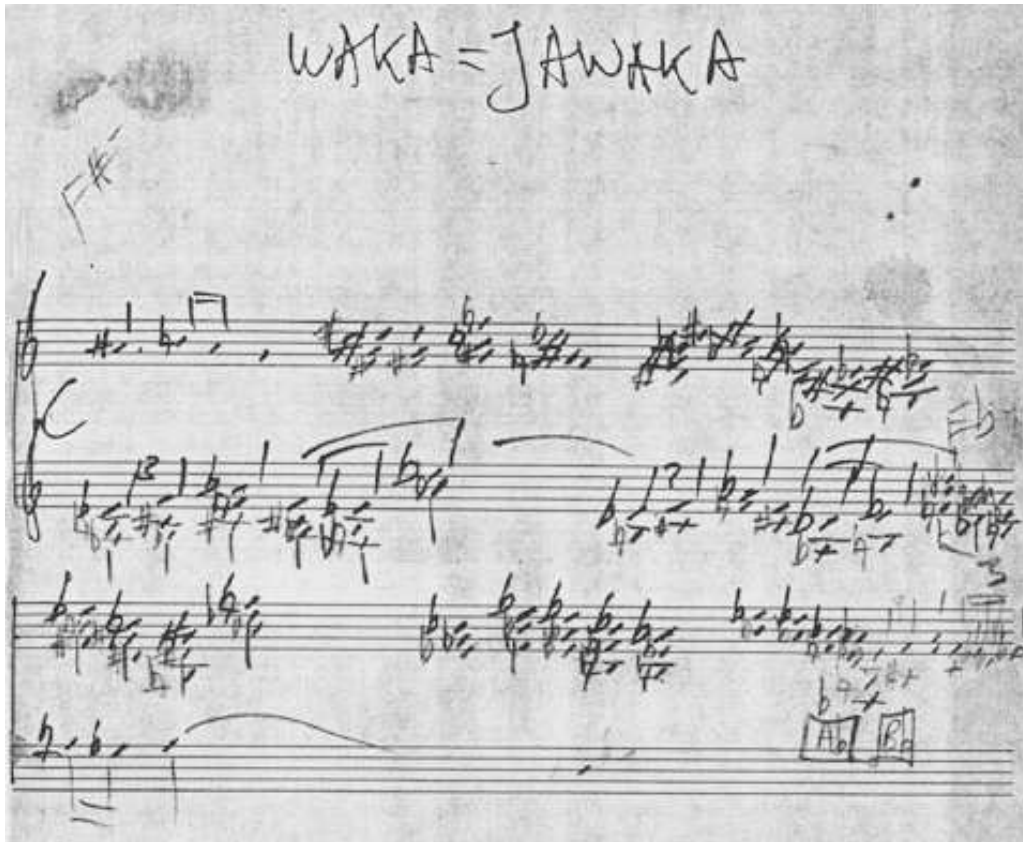 WAKA = JAWAKA
F#
Eb
3
3
Ab Bb